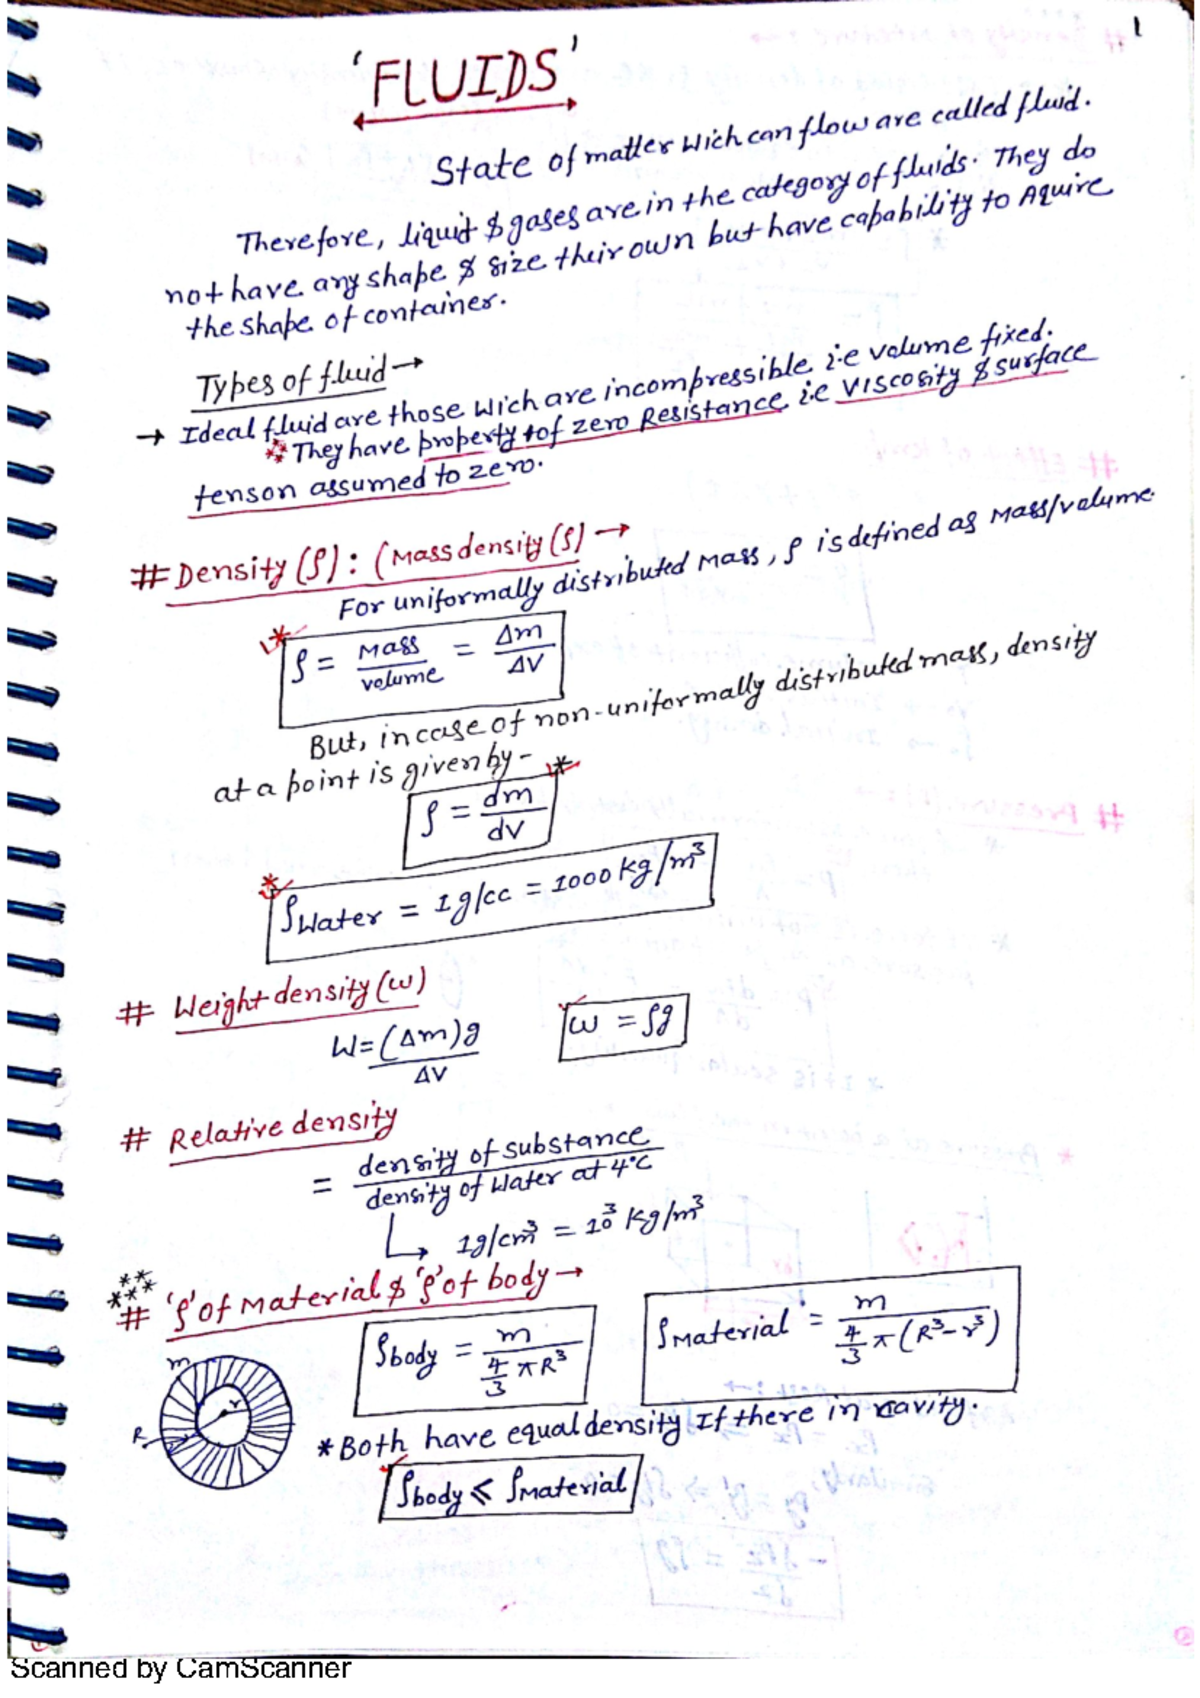 1
'FLUIDS'
State of matter wich can flow are called fluid.
Therefore, liquid & gases are in the category of fluids. They do
not have any shape & size their own but have capability to Aquire
the shape of container.
Types of fluid →
→ Ideal fluid are those wich are incompressible i.e volume fixed.
** They have property of zero Resistance i.e viscosity & surface
tenson assumed to zero.
# Density (ρ) : (Mass density (ρ) →
For uniformally distributed Mass, ρ is defined as Mass/volume.
* ρ = Mass/volume = Δm/ΔV
But, in case of non-uniformally distributed mass, density
at a point is given by -
ρ = dm/dv *
* ρWater = 1g/cc = 1000 kg/m³
# Weight density (w)
W = (Δm)g/ΔV   w = ρg
# Relative density
= density of substance/density of water at 4°C
↳ 1g/cm³ = 10³ kg/m³
*****
# 'ρ' of Material & 'ρ' of body →
ρbody = m/(4/3 π R³)   ρMaterial = m/(4/3 π (R³ - r³))
m
r
R
* Both have equal density If there in cavity.
ρbody ⩽ ρMaterial
Scanned by CamScanner